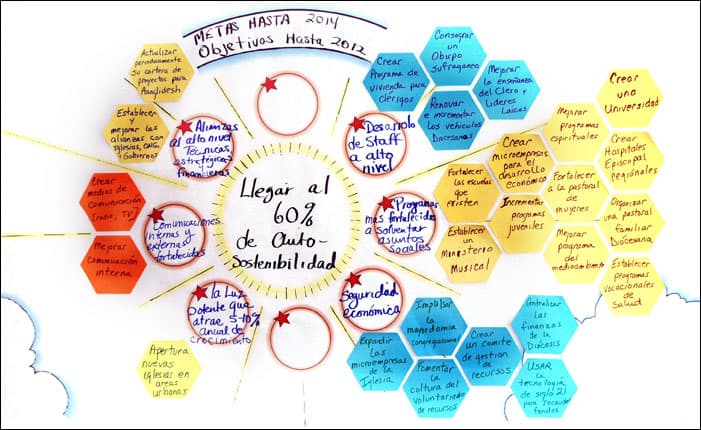 METAS HASTA 2014
Objetivos Hasta 2012
Actualizar
periodicamente
su cartera de
proyectos para
Establecer
y
mejorar las
alianzas con
Iglesias, ONG,
y Gobiernos
Alianzas
al alto nivel
Técnicas,
estratégicas y
financieras
Desarrollo
de Staff
a alto
nivel
Crear
Programa de
vivienda para
clérigos
Consagrar
un
Obispo
sufraganeo
Mejorar
la enseñanza
del Clero y
Lideres
Laicos
Renovar
e incrementar
los vehículos
Diocesanos
Llegar al
60%
de auto-
Sostenibilidad
Crear
medios de
comunicación
(radio, TV)
Mejorar
comunicación
interna
Comunicaciones
internas y
externas
fortalecidas
Programas
mas fortalecidos
a solventar
asuntos
sociales
Fortalecer
las escuelas
que
existen
Establecer
un
Ministerio
Musical
Crear
microempresas
para el
desarrollo
económico
Incrementar
programas
juveniles
Mejorar
programas
espirituales
Fortalecer
a la pastoral
de
mujeres
Mejorar
programa
del
medioambiente
Crear
una
Universidad
Crear
Hospitales
Episcopal
regionales
Organizar
una pastoral
familiar
Diocesana
Establecer
programas
vocacionales
de
Salud
la Luz
potente que
atrae 5-10%
anual de
crecimiento
Seguridad
económica
Apertura
nuevas
iglesias en
areas
urbanas
Impulsar
la
mayordomia
congregacional
Expandir
las
microempresas
de la
Iglesia
Fomentar
la
cultura del
voluntariado
de recursos
Crear
un comite
de gestion
de
recursos
Centralizar
las
finanzas
de la
Diócesis
USAR
la
tecnología
de siglo 21
para recaudar
fondos